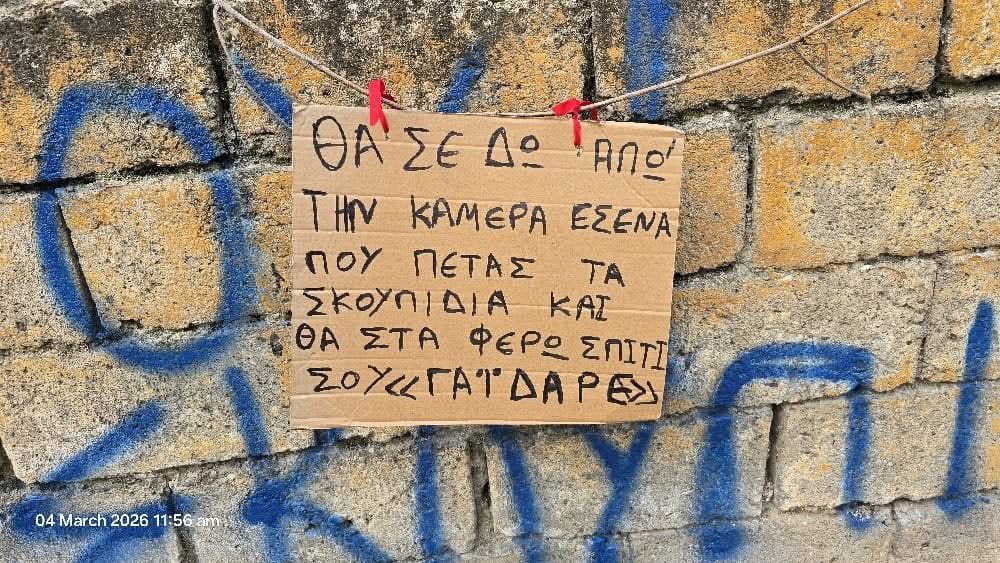 ΘΑ ΣΕ ΔΩ ΑΠΩ'
ΤΗΝ ΚΑΜΕΡΑ ΕΣΕΝΑ
ΠΟΥ ΠΕΤΑΣ ΤΑ
ΣΚΟΥΠΙΔΙΑ ΚΑΙ
ΘΑ ΣΤΑ ΦΕΡΩ ΣΠΙΤΙ
ΣΟΥ <<ΓΑΪΔΑΡΕ>>
04 March 2026 11:56 am